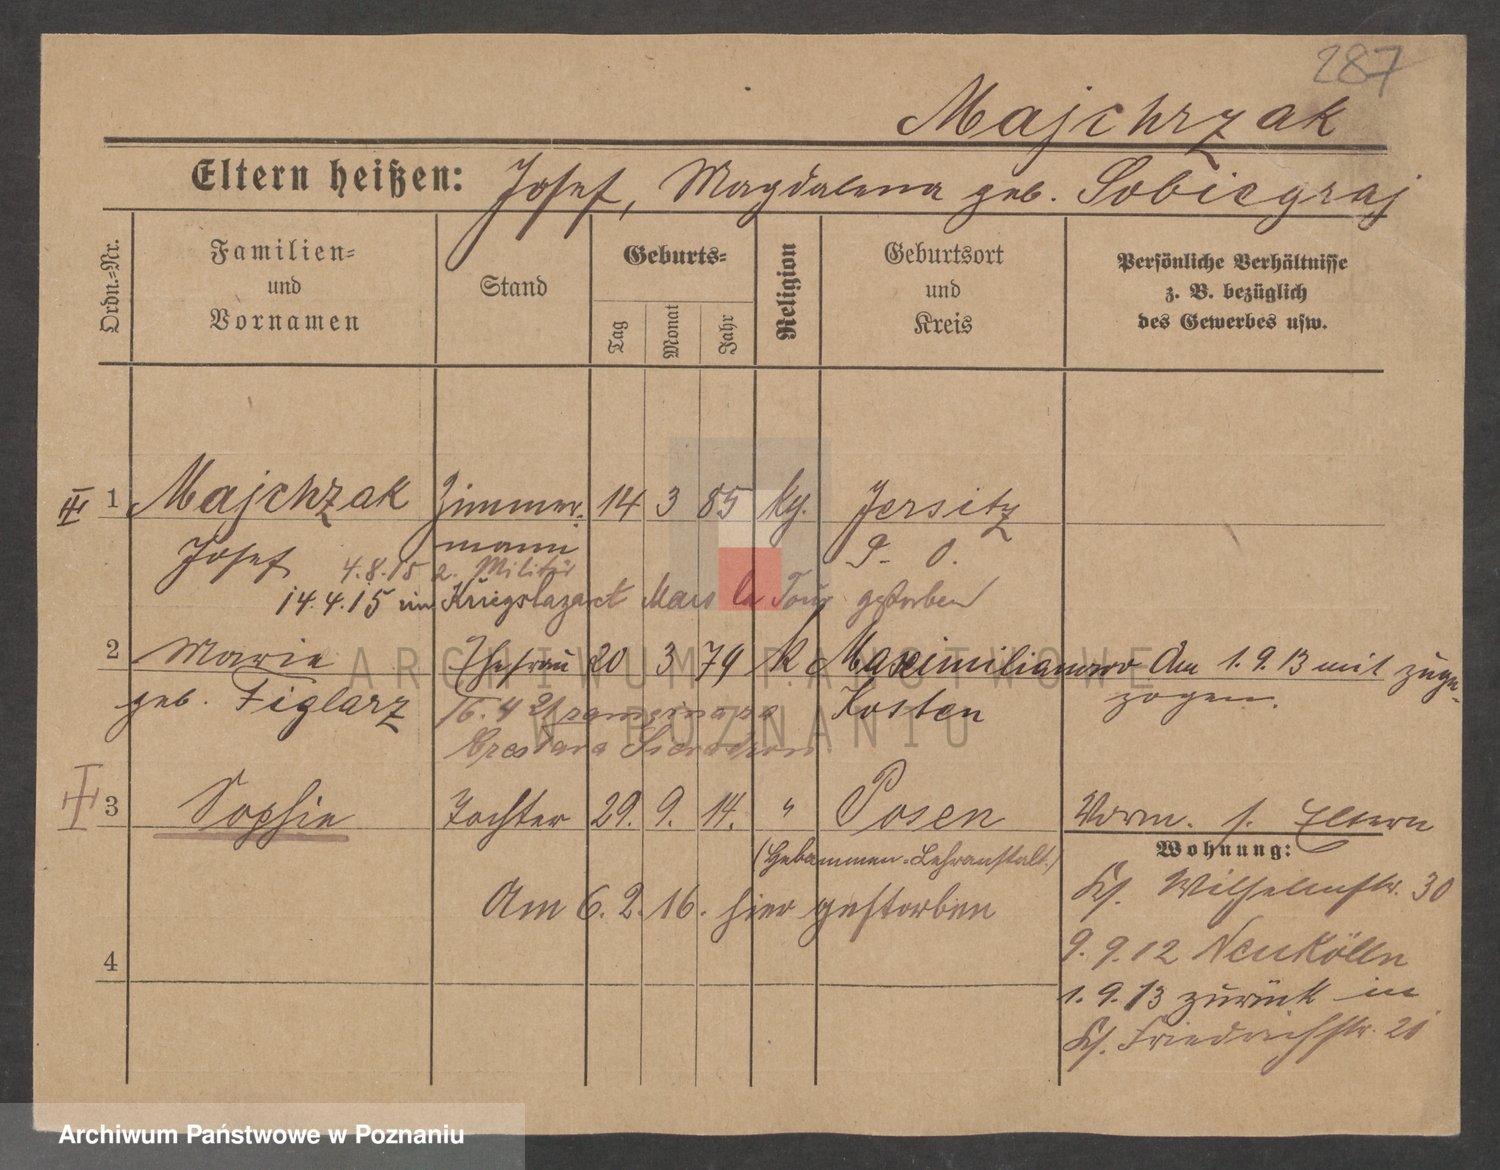 287
Majchrzak
Eltern heißen: Josef, Magdalena geb. Sobiegraj
Ordn.-Nr.
Familien-
und
Vornamen
Stand
Geburts-
Tag
Monat
Jahr
Religion
Geburtsort
und
Kreis
Persönliche Verhältnisse
z. B. bezüglich
des Gewerbes usw.
1 Majchrzak Zimmer- 14 3 85 kg. Jersitz
Josef mann P. O.
4.8.15 z. Militär
14.4.15 im Kriegslazarett Mars la Tour gestorben
2 Marie Ehefrau 20 3 79 k Maximilianowo Am 1.9.13 mit zuge-
geb. Figlarz Kosten zogen.
16.4.21
3 Sophie Tochter 29. 9. 14. " Posen Vorm. s. Eltern
(Hebammen-Lehranstalt.)
Am 6. 2. 16. hier gestorben
Wohnung:
Wilhelmstr. 30
9. 9. 12 Neukölln
1. 9. 13 zurück in
Friedrichstr. 21
4
ARCHIWUM PAŃSTWOWE
W POZNANIU
Archiwum Państwowe w Poznaniu